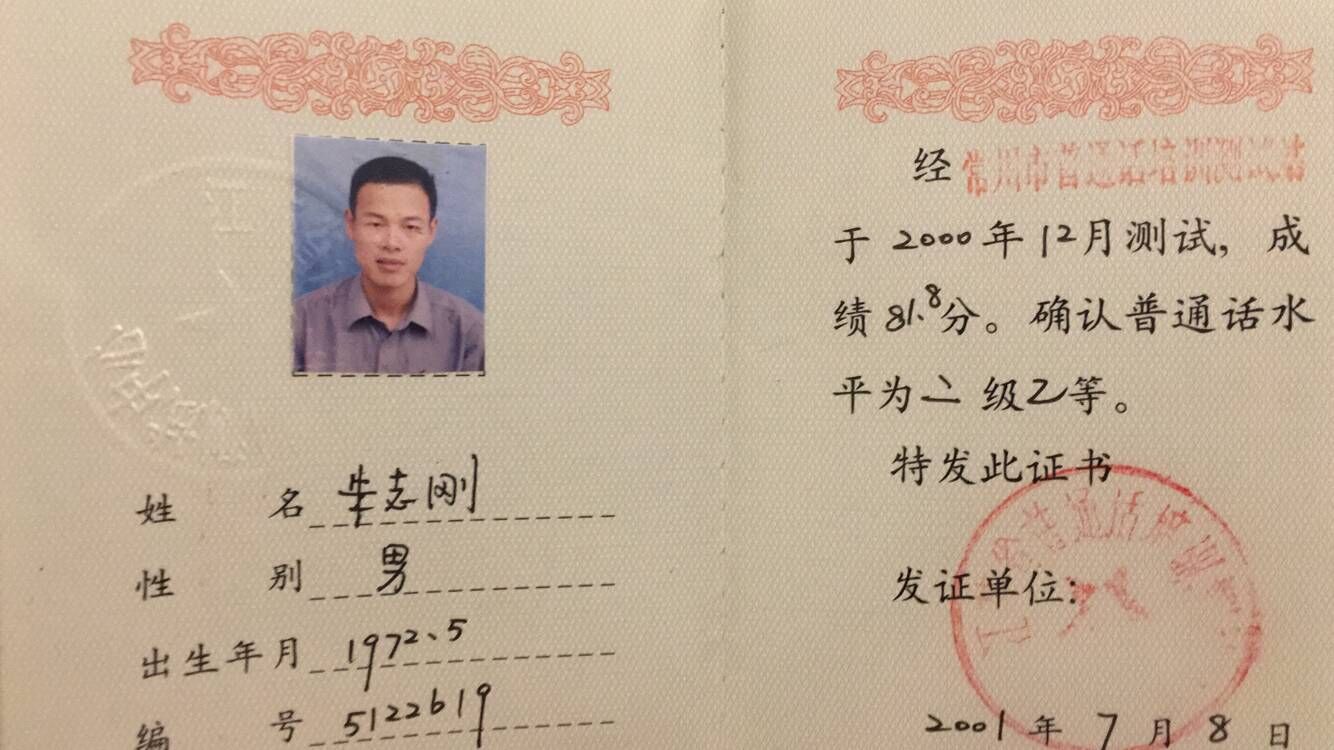 姓名 牛志刚
性别 男
出生年月 1972.5
编号 5122619
经常州市普通话培训测试站
于 2000年12月测试，成
绩81.8分。确认普通话水
平为二级乙等。
特发此证书
发证单位：
2001年7月8日